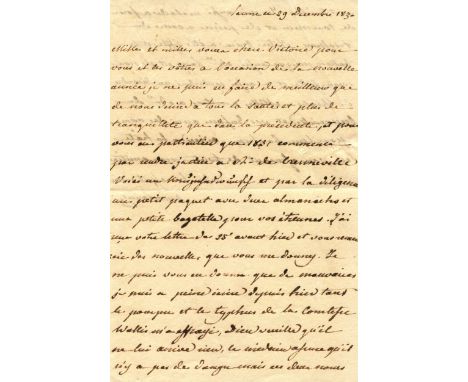 ce 29 Decembre 183
Milles et milles voeux chere Victoire pour
vous et les vôtres à l'occasion de la nouvelle
année je ne puis en faire de meilleurs que
de nous a tous la santé et plus de
tranquilité que dans la précédente, et pour
vous en particulier que 1831 commence
par
un et par la diligence
un petit paquet avec deux almanachs et
une petite bagatelle pour vos étrennes. J'ai
votre lettre du 25 avant hier et vous
des nouvelles que vous me donnez. Je
ne puis vous en donner que de mauvaises
je puis a peine depuis hier tant
la pompe et le typhus de la Comtesse
Wallis m'a effrayé, Dieu veuille qu'il
ne lui arrive rien, le médecin assure qu'il
n'y a pas de danger mais ces deux noms